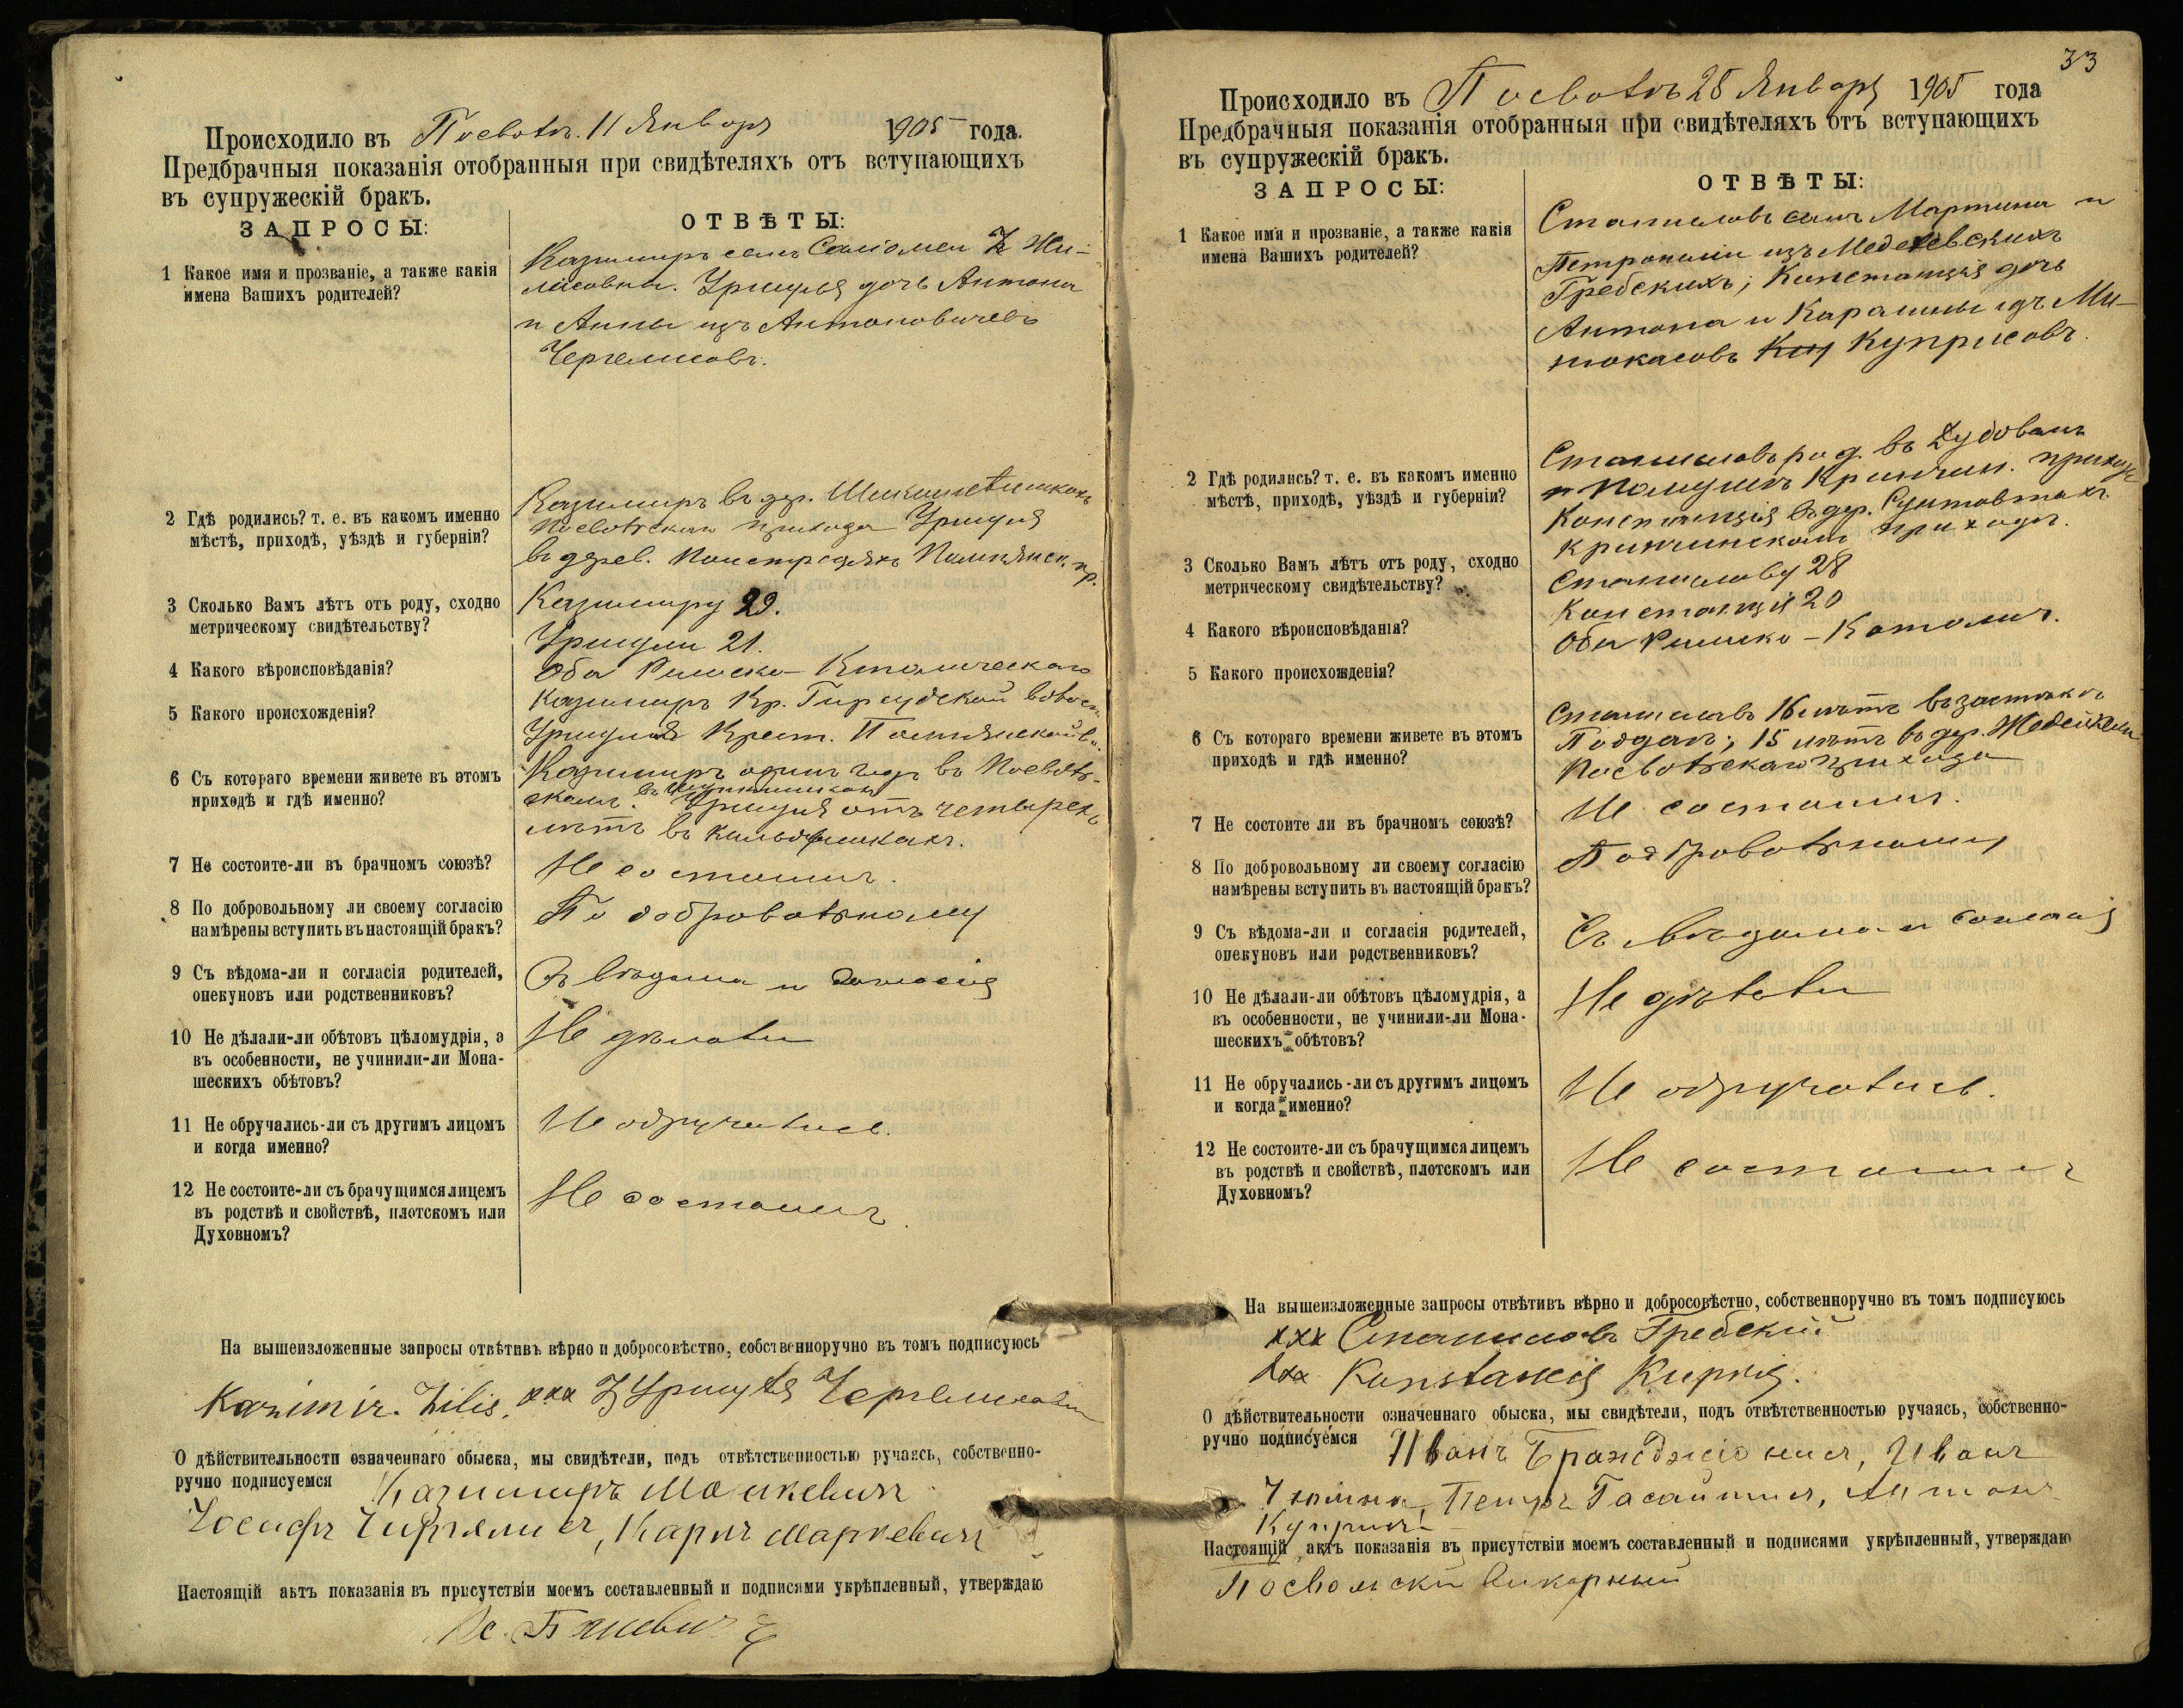 Происходило въ Посволѣ 11 Января 1905 года.
Предбрачныя показанія отобранныя при свидѣтеляхъ отъ вступающихъ
въ супружескій бракъ.
ЗАПРОСЫ:
ОТВѢТЫ:
1 Какое имя и прозваніе, а также какія
имена Вашихъ родителей?
Казимиръ сынъ Саломеи Жи-
лисовны. Уршуля дочь Антона
и Анны изъ Антоновичевъ
2 Гдѣ родились? т. е. въ какомъ именно
мѣстѣ, приходѣ, уѣздѣ и губерніи?
Казимиръ въ дер.
прихода Уршуля
въ дерев. пр.
3 Сколько Вамъ лѣтъ отъ роду, сходно
метрическому свидѣтельству?
Казимиру 29.
Уршули 21.
4 Какого вѣроисповѣданія?
Оба Римско-Католическаго
5 Какого происхожденія?
Казимиръ Кр.
Уршуля Крест.
6 Съ котораго времени живете въ этомъ
приходѣ и гдѣ именно?
Казимиръ одинъ годъ въ Посволь-
скомъ. Уршуля отъ четырехъ
лѣтъ въ
7 Не состоите-ли въ брачномъ союзѣ?
Не состоимъ.
8 По добровольному ли своему согласію
намѣрены вступить въ настоящій бракъ?
По добровольному
9 Съ вѣдома-ли и согласія родителей,
опекуновъ или родственниковъ?
Съ вѣдома и согласія
10 Не дѣлали-ли обѣтовъ цѣломудрія, а
въ особенности, не учинили-ли Мона-
шескихъ обѣтовъ?
Не дѣлали
11 Не обручались-ли съ другимъ лицомъ
и когда именно?
Не обручались.
12 Не состоите-ли съ брачущимся лицемъ
въ родствѣ и свойствѣ, плотскомъ или
Духовномъ?
Не состоимъ.
На вышеизложенные запросы отвѣтивъ вѣрно и добросовѣстно, собственноручно въ томъ подписуюсь
Kazimir. Žilis, ххх Уршуля
О дѣйствительности означеннаго обыска, мы свидѣтели, подъ отвѣтственностью ручаясь, собственно-
ручно подписуемся Казимиръ
Іосифъ, Карлъ Маркевичъ
Настоящій актъ показанія въ присутствіи моемъ составленный и подписями укрѣпленный, утверждаю
33
Происходило въ Посволѣ 25 Января 1905 года
Предбрачныя показанія отобранныя при свидѣтеляхъ отъ вступающихъ
въ супружескій бракъ.
ЗАПРОСЫ:
ОТВѢТЫ:
1 Какое имя и прозваніе, а также какія
имена Вашихъ родителей?
Станиславъ сынъ Мартина и
Петронели изъ
Гребскихъ; Констанція дочь
Антона и Каралины изъ Ми-
токасовъ Куприсовъ.
2 Гдѣ родились? т. е. въ какомъ именно
мѣстѣ, приходѣ, уѣздѣ и губерніи?
Станиславъ род. въ
Кринчин. приходѣ
Констанція въ дер.
Кринчинскомъ приходѣ.
3 Сколько Вамъ лѣтъ отъ роду, сходно
метрическому свидѣтельству?
Станиславу 28
Констанція 20
4 Какого вѣроисповѣданія?
Оба Римско-Католич.
5 Какого происхожденія?
6 Съ котораго времени живете въ этомъ
приходѣ и гдѣ именно?
Станиславъ 16 лѣтъ въ застѣнкѣ
15 лѣтъ въ дер.
Посвольскаго прихода
7 Не состоите ли въ брачномъ союзѣ?
Не состоимъ.
8 По добровольному ли своему согласію
намѣрены вступить въ настоящій бракъ?
По добровольному
9 Съ вѣдома-ли и согласія родителей,
опекуновъ или родственниковъ?
Съ вѣдома и согласія
10 Не дѣлали-ли обѣтовъ цѣломудрія, а
въ особенности, не учинили-ли Мона-
шескихъ обѣтовъ?
Не дѣлали
11 Не обручались-ли съ другимъ лицомъ
и когда именно?
Не обручались.
12 Не состоите-ли съ брачущимся лицемъ
въ родствѣ и свойствѣ, плотскомъ или
Духовномъ?
Не состоимъ
На вышеизложенные запросы отвѣтивъ вѣрно и добросовѣстно, собственноручно въ томъ подписуюсь
ххх Станиславъ Гребскій
ххх
О дѣйствительности означеннаго обыска, мы свидѣтели, подъ отвѣтственностью ручаясь, собственно-
ручно подписуемся Иванъ, Иванъ
Петръ, Антонъ
Куприсъ
Настоящій актъ показанія въ присутствіи моемъ составленный и подписями укрѣпленный, утверждаю
Посвольскій Викарный